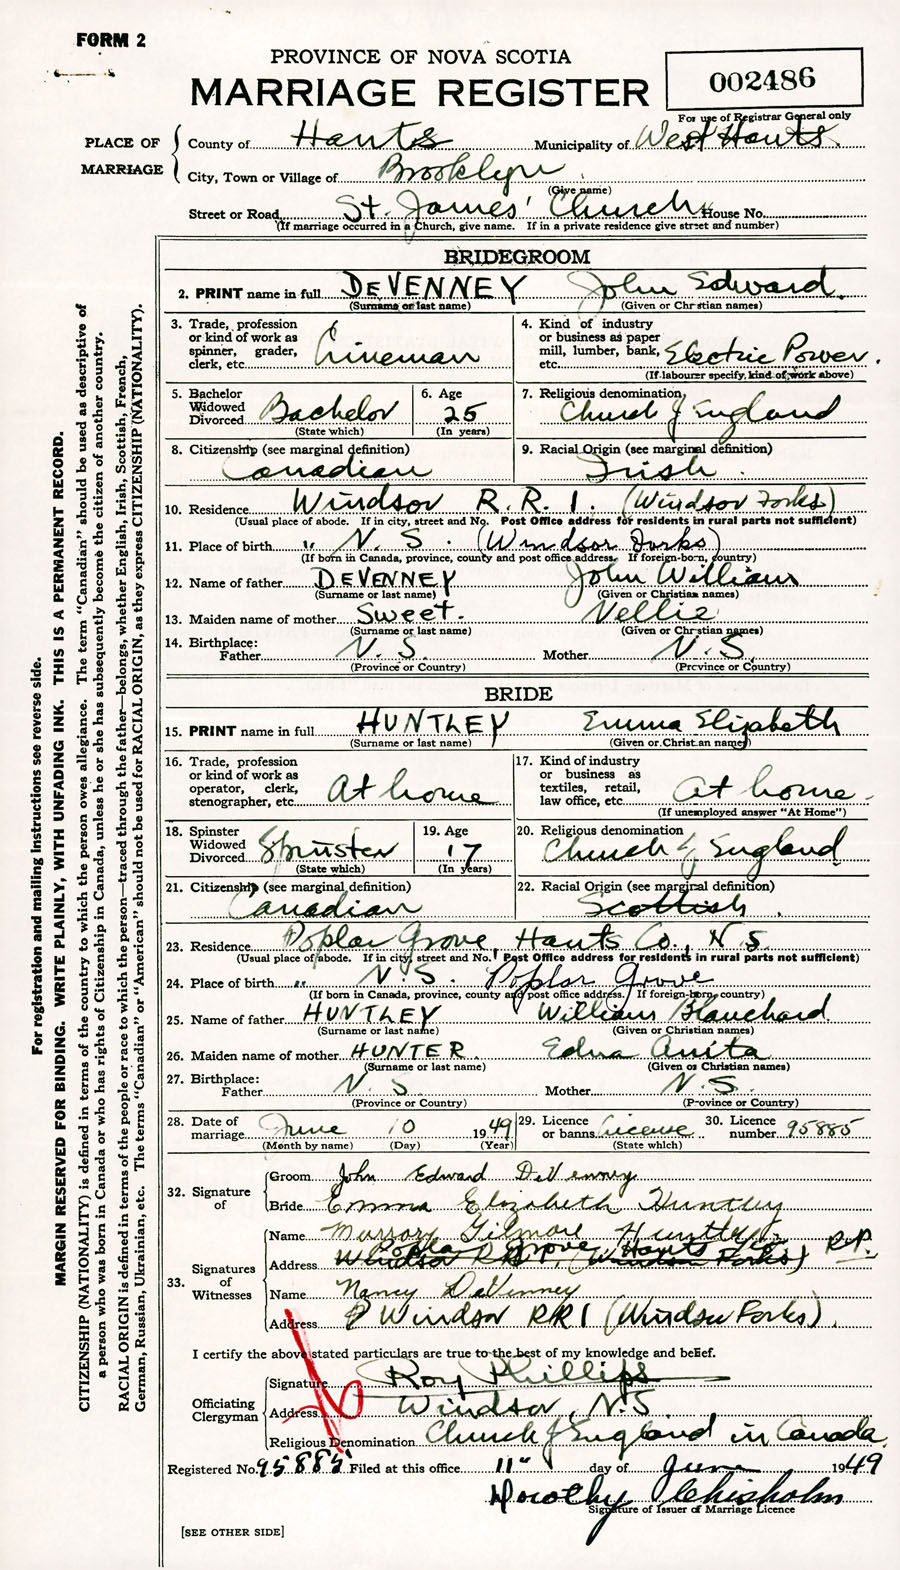 FORM 2
PROVINCE OF NOVA SCOTIA
MARRIAGE REGISTER
002486
For use of Registrar General only
PLACE OF MARRIAGE
County of Hants Municipality of West Hants
City, Town or Village of Brooklyn
(Give name)
Street or Road St. James' Church House No.
(If marriage occurred in a Church, give name. If in a private residence give street and number)
BRIDEGROOM
2. PRINT name in full DEVENNEY John Edward.
(Surname or last name) (Given or Christian names)
3. Trade, profession or kind of work as spinner, grader, clerk, etc. Lineman
4. Kind of industry or business as paper mill, lumber, bank, etc. Electric Power.
(If labourer specify, kind of work above)
5. Bachelor Widowed Divorced Bachelor
(State which)
6. Age 25
(In years)
7. Religious denomination, Church of England
8. Citizenship (see marginal definition)
Canadian
9. Racial Origin (see marginal definition)
Irish.
10. Residence Windsor R.R.1. (Windsor Forks)
(Usual place of abode. If in city, street and No. Post Office address for residents in rural parts not sufficient)
11. Place of birth " N.S. (Windsor Forks)
(If born in Canada, province, county and post office address. If foreign-born, country)
12. Name of father DEVENNEY John William
(Surname or last name) (Given or Christian names)
13. Maiden name of mother Sweet. Nellie
(Surname or last name) (Given or Christian names)
14. Birthplace:
Father N.S. Mother N.S.
(Province or Country) (Province or Country)
BRIDE
15. PRINT name in full HUNTLEY Emma Elizabeth
(Surname or last name) (Given or Christian names)
16. Trade, profession or kind of work as operator, clerk, stenographer, etc. At home
17. Kind of industry or business as textiles, retail, law office, etc. At home.
(If unemployed answer "At Home")
18. Spinster Widowed Divorced Spinster
(State which)
19. Age 17
(In years)
20. Religious denomination
Church of England
21. Citizenship (see marginal definition)
Canadian
22. Racial Origin (see marginal definition)
Scottish.
23. Residence Poplar Grove, Hants Co., N.S.
(Usual place of abode. If in city, street and No. Post Office address for residents in rural parts not sufficient)
24. Place of birth " N.S. Poplar Grove
(If born in Canada, province, county and post office address. If foreign-born, country)
25. Name of father HUNTLEY William Blanchard
(Surname or last name) (Given or Christian names)
26. Maiden name of mother HUNTER. Edna Anita
(Surname or last name) (Given or Christian names)
27. Birthplace:
Father N.S Mother N.S.
(Province or Country) (Province or Country)
28. Date of marriage June 10 1949
(Month by name) (Day) (Year)
29. Licence or banns License
(State which)
30. Licence number 95885
32. Signature of
Groom John Edward DeVenney
Bride Emma Elizabeth Huntley
33. Signatures of Witnesses
Name Murray Gilmore Huntley
Address Windsor (Windsor Forks) Poplar Grove Hants Co R.P.
Name Nancy DeVenney
Address Windsor RR1 (Windsor Forks).
I certify the above stated particulars are true to the best of my knowledge and belief.
Officiating Clergyman
Signature Roy Phillips
Address Windsor, N.S.
Religious Denomination Church of England in Canada
Registered No. 95885 Filed at this office 11" day of June 1949
Dorothy Chisholm
Signature of Issuer of Marriage Licence
[SEE OTHER SIDE]
For registration and mailing instructions see reverse side.
MARGIN RESERVED FOR BINDING. WRITE PLAINLY, WITH UNFADING INK. THIS IS A PERMANENT RECORD.
CITIZENSHIP (NATIONALITY) is defined in terms of the country to which the person owes allegiance. The term "Canadian" should be used as descriptive of
a person who was born in Canada or who has rights of Citizenship in Canada, unless he or she has subsequently become the citizen of another country.
RACIAL ORIGIN is defined in terms of the people or race to which the person—traced through the father—belongs, whether English, Irish, Scottish, French,
German, Russian, Ukrainian, etc. The terms "Canadian" or "American" should not be used for RACIAL ORIGIN, as they express CITIZENSHIP (NATIONALITY).